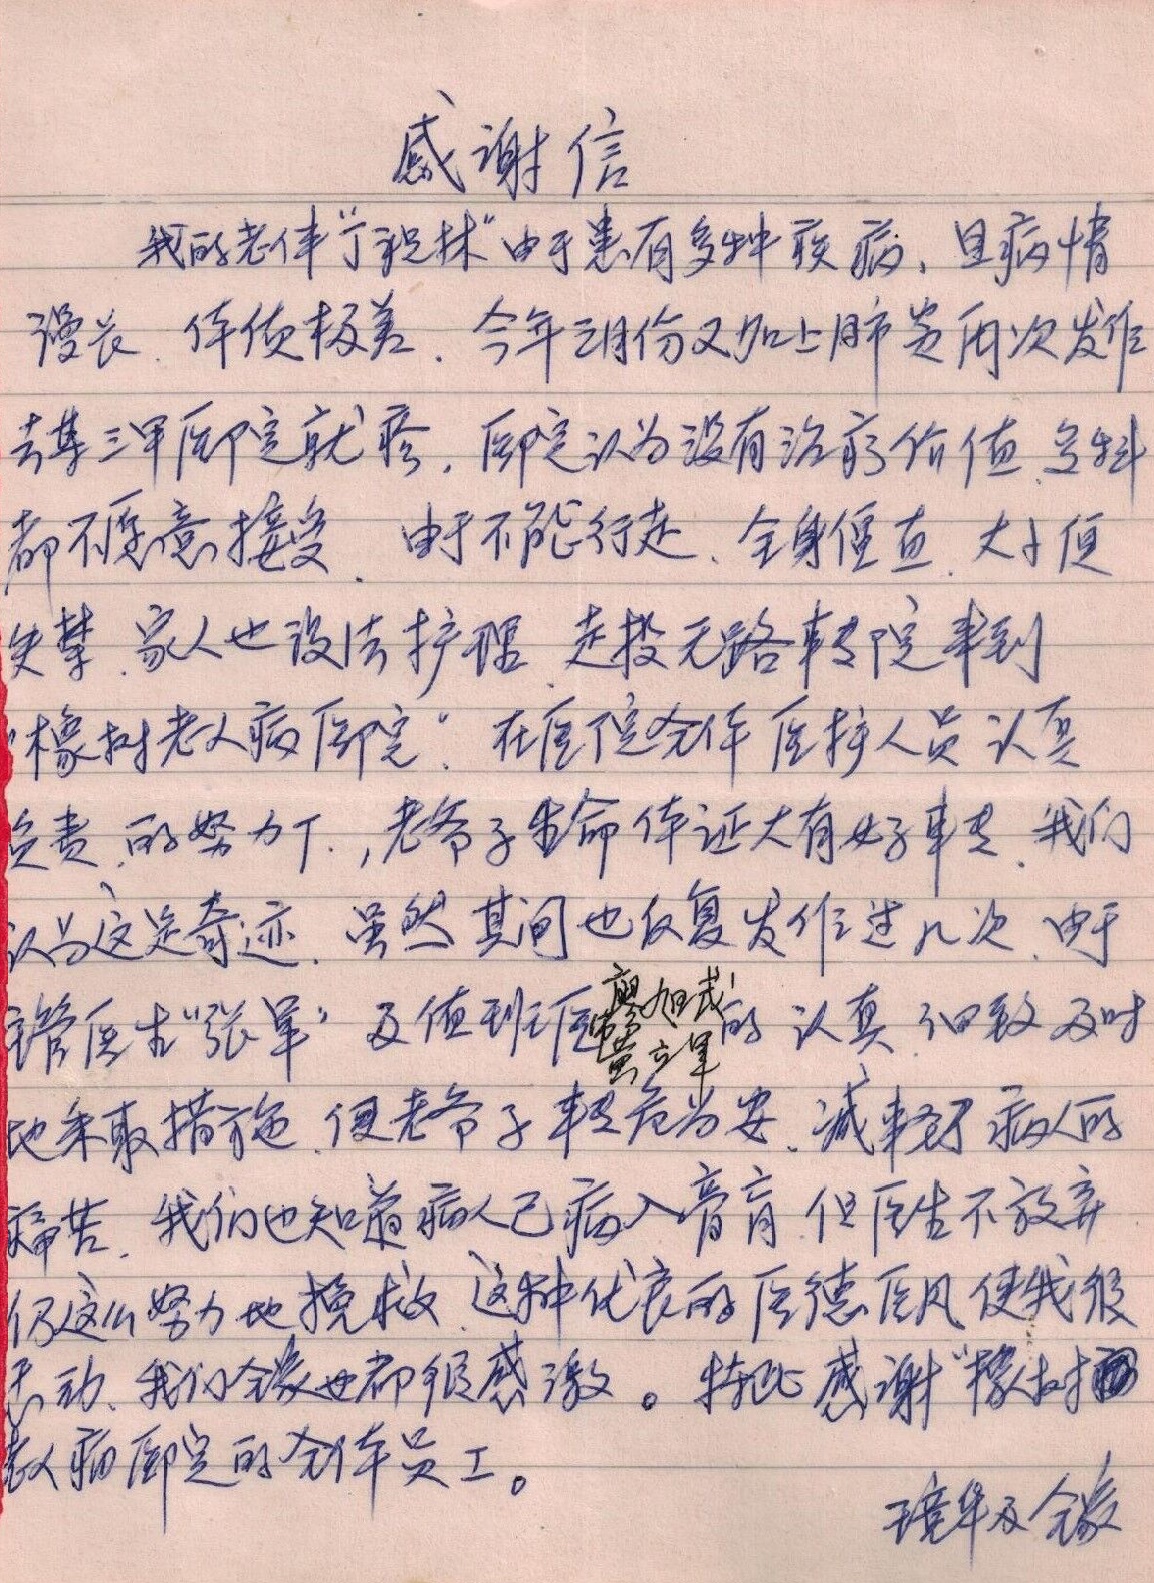 感谢信
我的老伴“丁积林”由于患有多种疾病、且病情
漫长、体质极差、今年三月份又加上肺炎两次发作
去某三甲医院就疹，医院认为没有治疗价值、各科
都不愿意接受、由于不能行走、全身僵直、大小便
失禁、家人也没法护理、走投无路转院来到
“橡树老人病医院”在医院全体医护人员认真
负责、的努力下.，老爷子生命体证大有好转、我们
认为这是奇迹、虽然其间也反复发作过几次、由于
主管医生“张军”及值班医 廖旭武 黄立军 的认真、细致及时
地采取措施、使老爷子转危为安、减轻了病人的
痛苦、我们也知道病人已病入膏肓、但医生不放弃
仍这么努力地挽救、这种优良的医德医风使我很
感动、我们全家也都很感激。特此感谢“橡树
老人病医院的全体员工。
华及全家